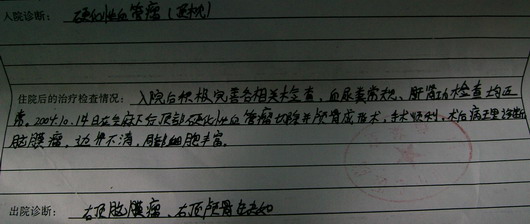 入院诊断： 硬化性血管瘤（左枕）
住院后的治疗检查情况： 入院后积极完善各相关术检查，血尿粪常规、肝肾功检查均正
常。2004.10.14日在全麻下行顶部硬化性血管瘤切除并颅骨成形术，手术顺利，术后病理诊断
脑膜瘤，边界不清，间质细胞丰富。
出院诊断： 右顶脑膜瘤、右顶颅骨